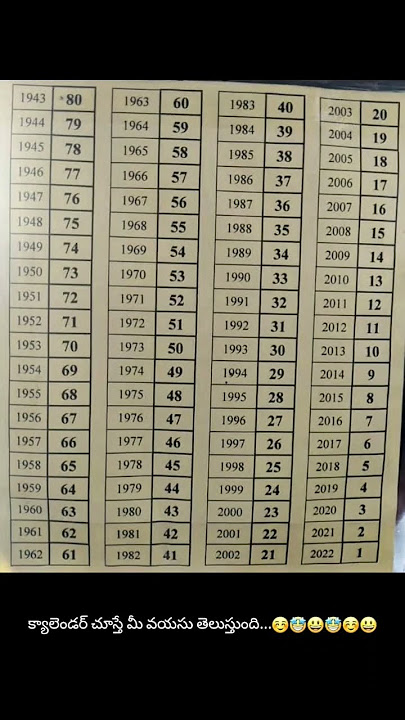 1943 80 1963 60 1983 40 2003 20
1944 79 1964 59 1984 39 2004 19
1945 78 1965 58 1985 38 2005 18
1946 77 1966 57 1986 37 2006 17
1947 76 1967 56 1987 36 2007 16
1948 75 1968 55 1988 35 2008 15
1949 74 1969 54 1989 34 2009 14
1950 73 1970 53 1990 33 2010 13
1951 72 1971 52 1991 32 2011 12
1952 71 1972 51 1992 31 2012 11
1953 70 1973 50 1993 30 2013 10
1954 69 1974 49 1994 29 2014 9
1955 68 1975 48 1995 28 2015 8
1956 67 1976 47 1996 27 2016 7
1957 66 1977 46 1997 26 2017 6
1958 65 1978 45 1998 25 2018 5
1959 64 1979 44 1999 24 2019 4
1960 63 1980 43 2000 23 2020 3
1961 62 1981 42 2001 22 2021 2
1962 61 1982 41 2002 21 2022 1
క్యాలెండర్ చూస్తే మీ వయసు తెలుస్తుంది...☺️🤩😃🤩☺️😃